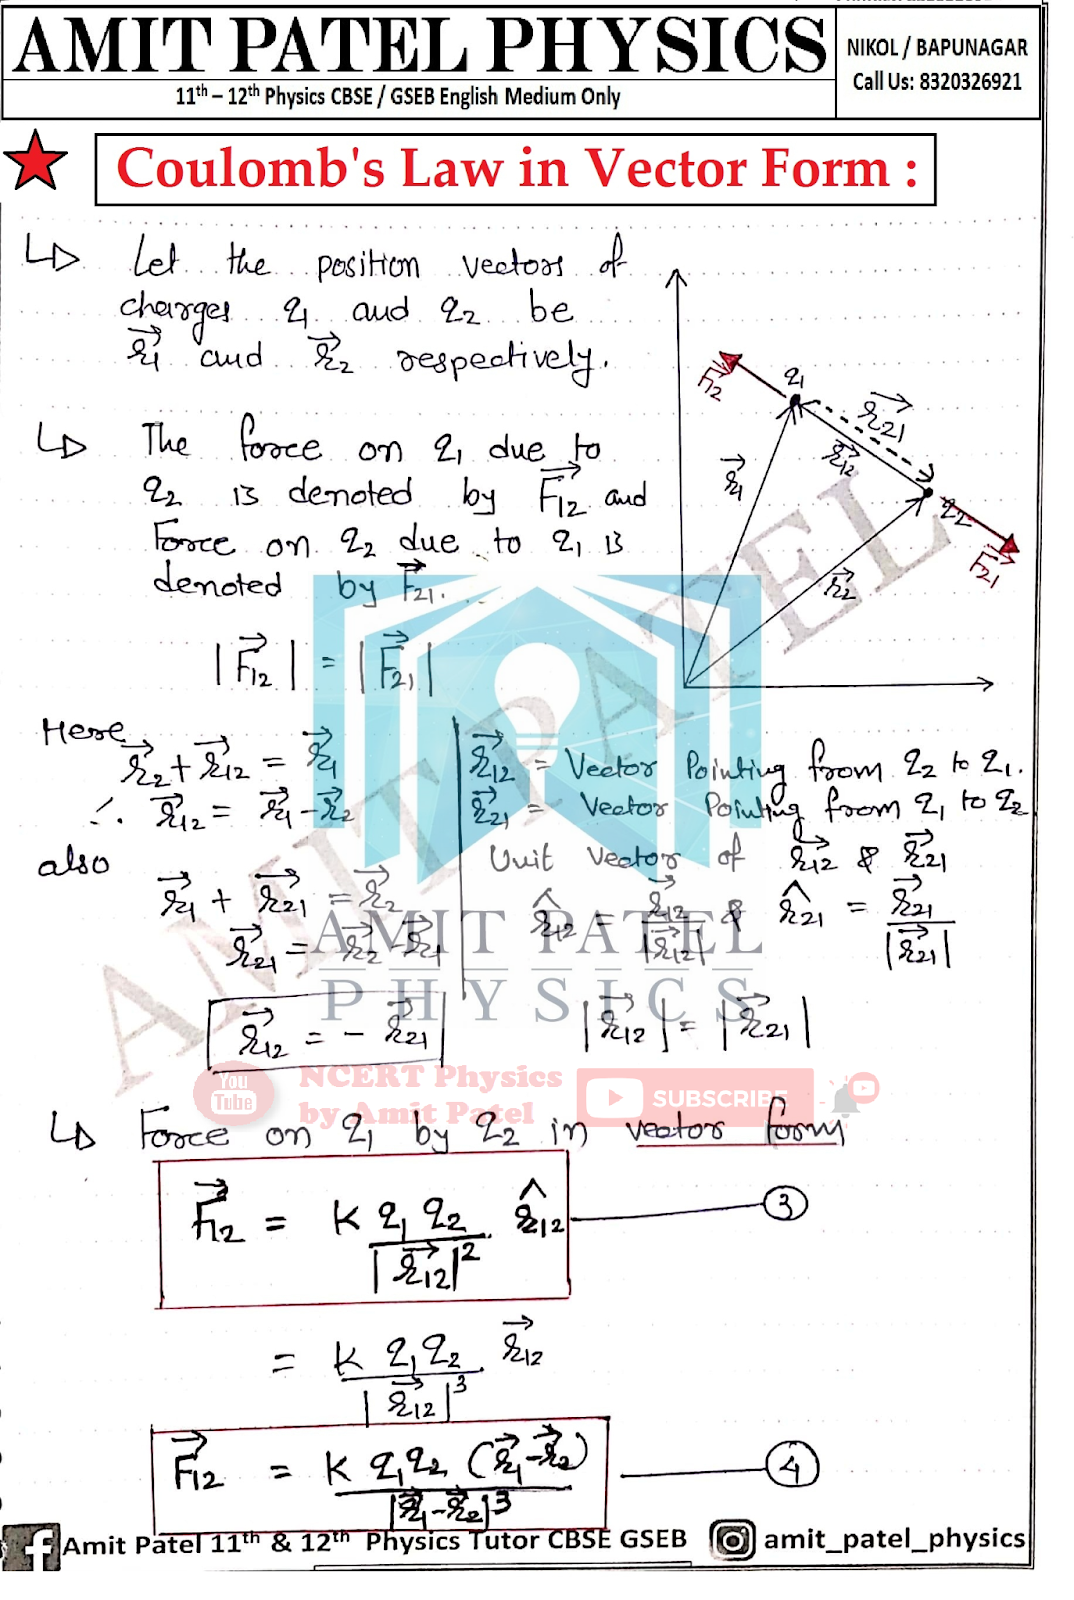 AMIT PATEL PHYSICS
11th – 12th Physics CBSE / GSEB English Medium Only
NIKOL / BAPUNAGAR
Call Us: 8320326921
Coulomb's Law in Vector Form :
↳ Let the position vectors of
charges q1 and q2 be
r⃗1 and r⃗2 respectively.
↳ The force on q1 due to
q2 is denoted by F⃗12 and
Force on q2 due to q1 is
denoted by F⃗21.
|F⃗12| = |F⃗21|
F⃗12
q1
r⃗21
r⃗12
r⃗1
q2
F⃗21
r⃗2
Here
r⃗2 + r⃗12 = r⃗1
∴ r⃗12 = r⃗1 - r⃗2
also
r⃗1 + r⃗21 = r⃗2
r⃗21 = r⃗2 - r⃗1
r⃗12 = - r⃗21
r⃗12 = Vector Pointing from q2 to q1.
r⃗21 = Vector Pointing from q1 to q2
Unit vector of r⃗12 & r⃗21
r̂12 = r⃗12 / |r⃗12| & r̂21 = r⃗21 / |r⃗21|
|r⃗12| = |r⃗21|
AMIT PATEL
AMIT PATEL
PHYSICS
You Tube
NCERT Physics
by Amit Patel
SUBSCRIBE
↳ Force on q1 by q2 in vector form
F⃗12 = K q1 q2 / |r⃗12|² r̂12 ③
= K q1 q2 / |r⃗12|³ r⃗12
F⃗12 = K q1 q2 (r⃗1 - r⃗2) / |r⃗1 - r⃗2|³ ④
f Amit Patel 11th & 12th Physics Tutor CBSE GSEB amit_patel_physics